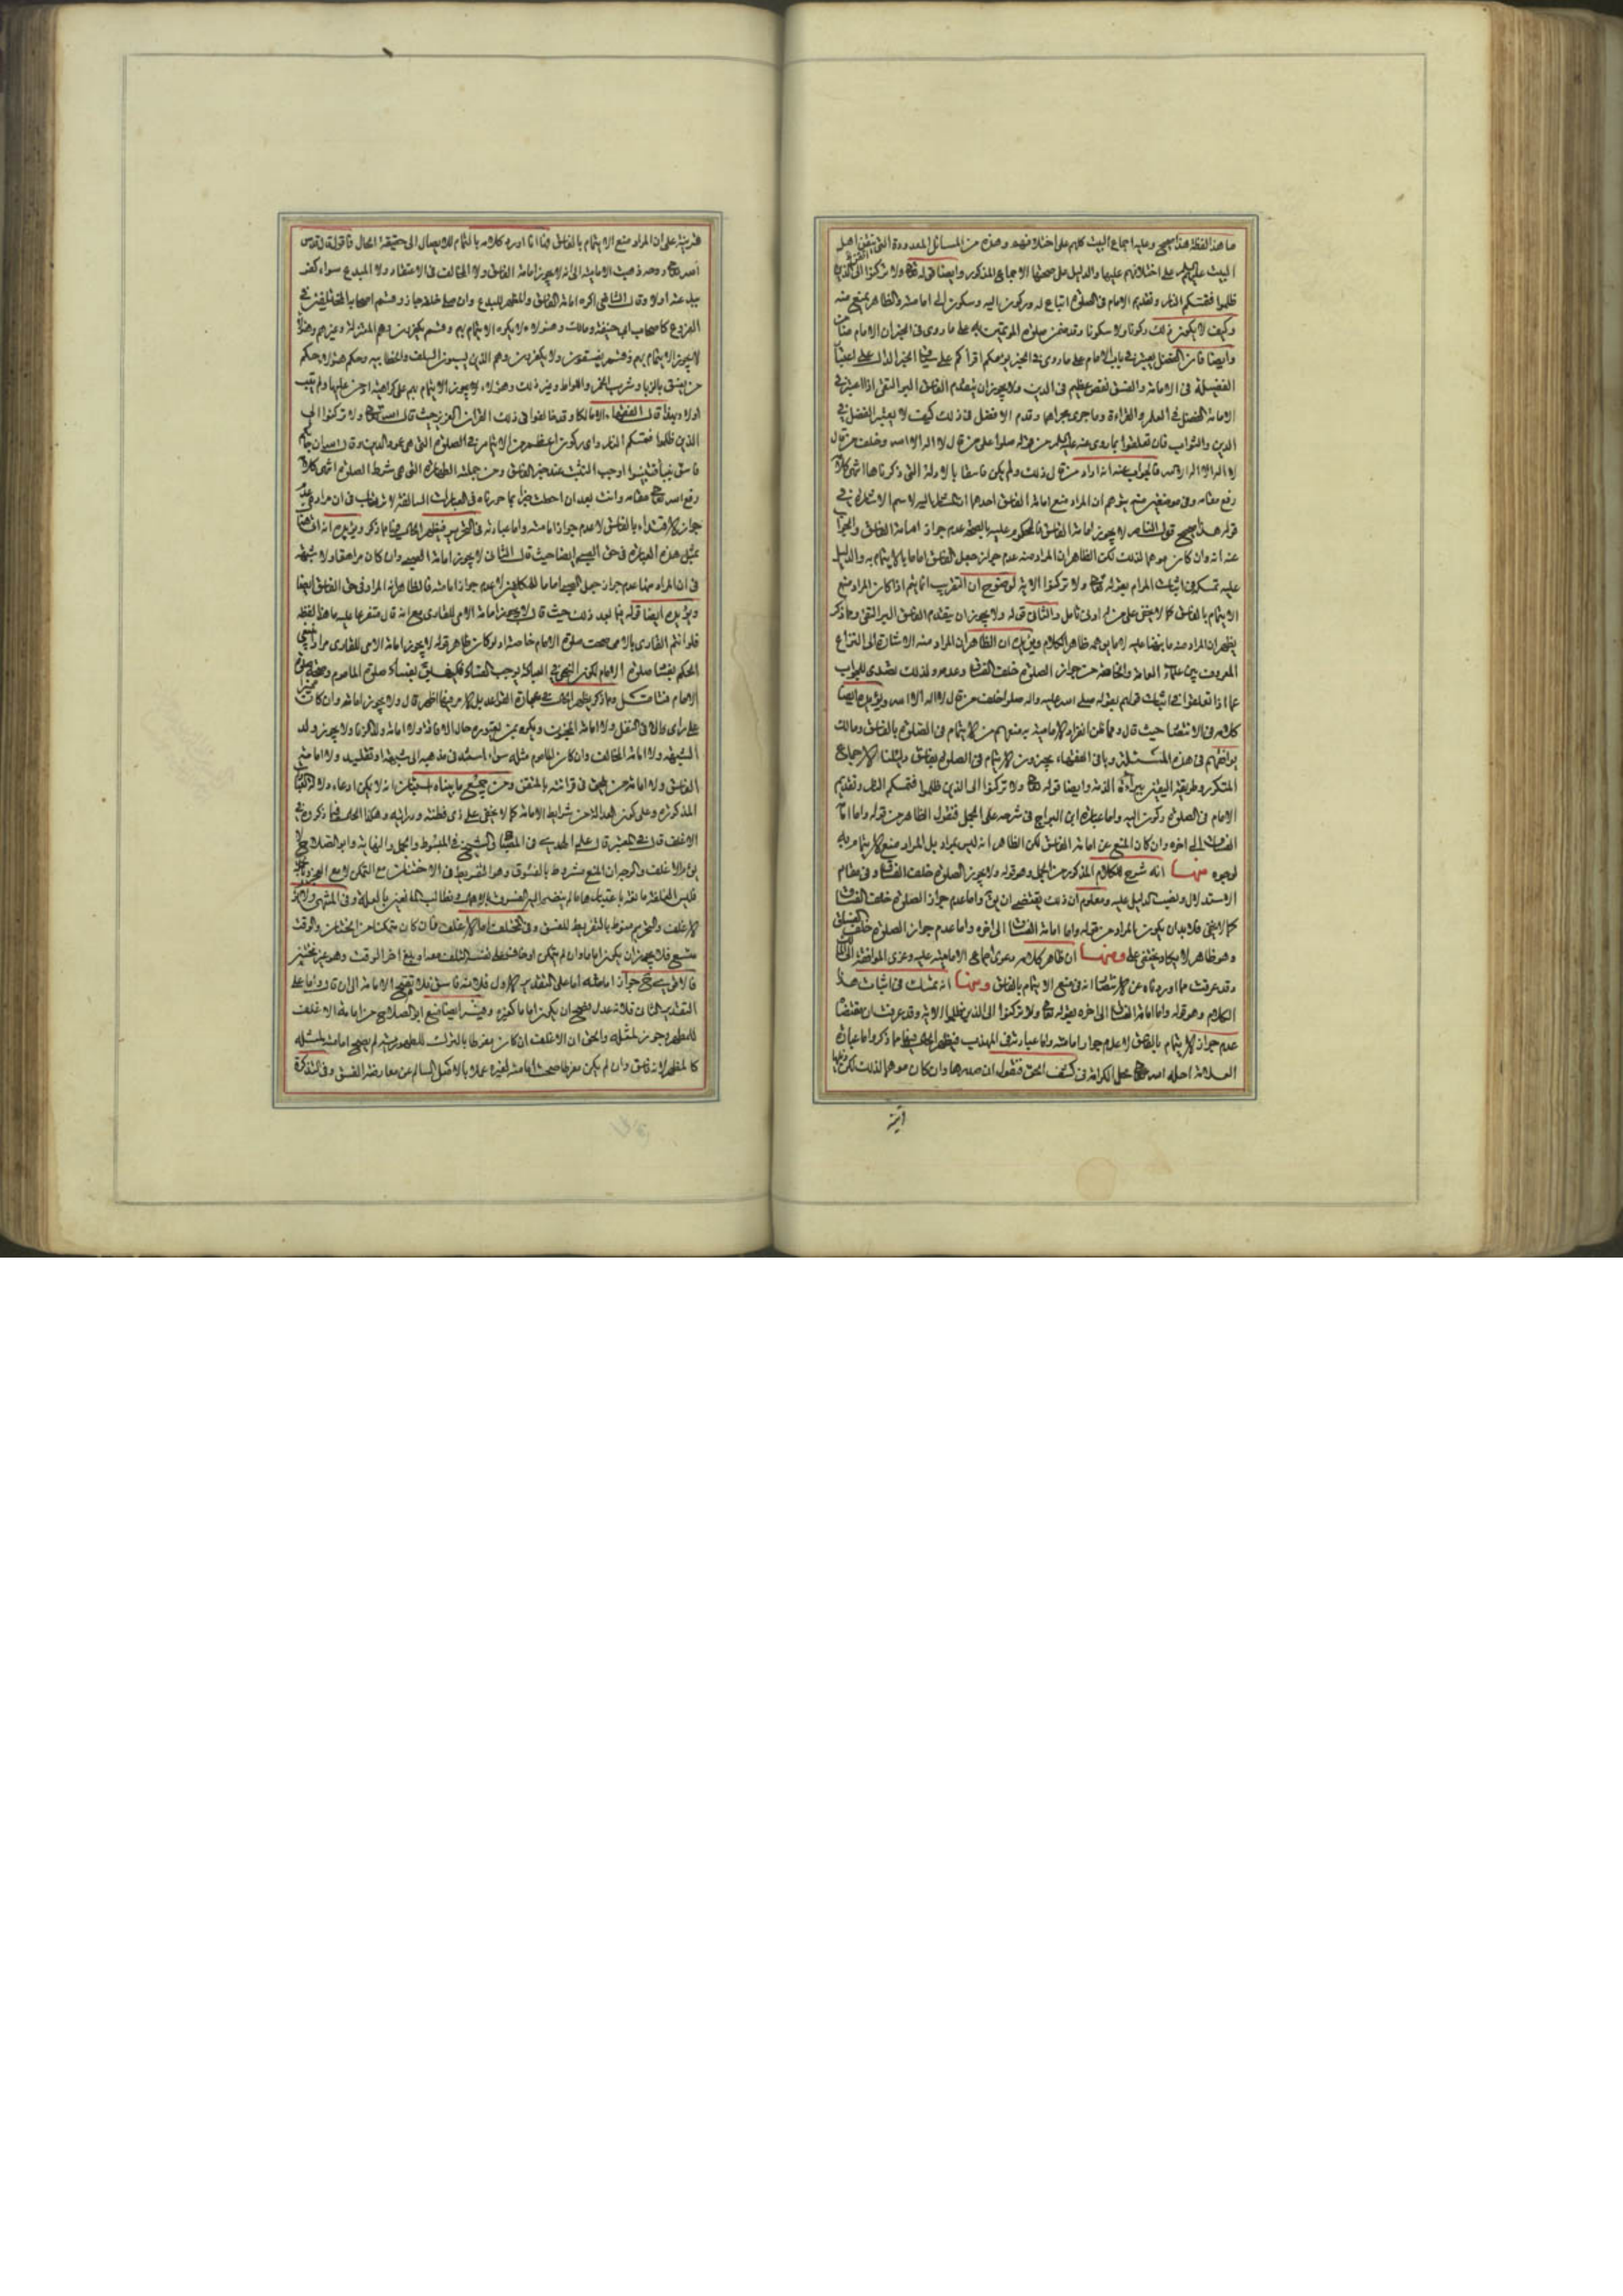 ما هذا لفظه هذا صحيح وعليه اجماع اهل البيت كلهم على اختلافهم وهذه من المسائل المعدودة التي يتفق اهل
البيت عليهم السلم على اختلافهم عليها والدليل على صحتها الاجماع المذكور وايضا قوله تعالى ولا تركنوا الى الذين
ظلموا فتمسكم النار وتقديم الامام في الصلوة اتباع له وركون اليه وسكون الى امامته والظاهر يمنع منه
وكيف لا يكون ذلك ركونا ولا سكونا وقد
وايضا فان الفضل يعتبر في باب الامام على ما روى في الخبر يؤمكم اقرأكم
الفضيلة في الامامة والفسق نقص عظيم في الدين ولا يجوز ان يتقدم الفاسق البر التقي اذا اعتبر في
الامامة الفضل في العلم والقراءة وما جرى مجراها وقدم الافضل في ذلك كيف لا يعتبر الفضل في
الدين والثواب فان تعلقوا بما روى عنه عليه السلم من قوله صلوا على من قال لا اله الا الله وخلف من قال
لا اله الا الله فالجواب عنه انه اراد من قال ذلك ولم يكن فاسقا بالادلة التي ذكرناها انتهى كلامه
رفع مقامه وفي موضعين منه يتوهم ان المراد منع امامة الفاسق احدهما ان المشار اليه لاسم الاشارة في
قوله هذا صحيح قول الناصر لا يجوز امامة الفاسق فالمحكوم عليه بالصحة عدم جواز امامة الفاسق والجواب
عنه انه وان كان موهما لذلك لكن الظاهر ان المراد منه عدم جواز جعل الفاسق اماما بالايتمام به والدليل
عليه تمسكه في اثبات المرام بقوله تعالى ولا تركنوا الاية لوضوح ان التقريب انما يتم اذا كان المراد منع
الايتمام بالفاسق كما لا يخفى على من له ادنى تامل والثاني قوله ولا يجوز ان يتقدم الفاسق البر التقي وبما ذكر
يظهر ان المراد منه ما نبهنا عليه لا ما يوهمه ظاهر الكلام ويؤيده ان الظاهر ان المراد منه الاشارة الى النزاع
المعروف بين علماء العامة والخاصة من جواز الصلوة خلف الفساق وعدمه ولذلك تصدى للجواب
عما اذا تعلقوا في اثبات قولهم بقوله صلى الله عليه واله صلوا خلف من قال لا اله الا الله ويؤيده ايضا
كلامه في الانتصار حيث قال ومما ظن انفراد الامامية به منعهم من الايتمام في الصلوة بالفاسق ومالك
يوافقهم في هذه المسئلة وباقي الفقهاء يجيزون الايتمام في الصلوة بفاسق دليلنا الاجماع
المتكرر وطريقة اليقين ببراءة الذمة وايضا قوله تعالى ولا تركنوا الى الذين ظلموا فتمسكم النار وتقديم
الامام في الصلوة ركون اليه واما عبارة ابن البراج في شرحه على الجمل فنقول الظاهر من قوله واما امامة
الفساق الى اخره وان كان المنع عن امامة الفاسق لكن الظاهر انه ليس بمراد بل المراد منع الايتمام به
لوجوه منها انه شرح للكلام المذكور من الجمل وهو قوله ولا يجوز الصلوة خلف الفساق وفي مقام
الاستدلال ونصب الدليل عليه ومعلوم ان ذلك يقتضي ان واما عدم جواز الصلوة خلف الفساق
كما لا يخفى فلا بد ان يكون المراد من قوله واما امامة الفساق الى اخره واما عدم جواز الصلوة خلف الفساق
وهو ظاهر لا يكاد يختفى عليه ومنها ان ظاهر كلامه دعوى اجماع الامامية عليه وعزى الموافقة الى مالك
وقد عرفت مما اوردناه عن الانتصار انه في منع الايتمام بالفاسق ومنها انه تمسك في اثبات هذا
الكلام وهو قوله واما امامة الفساق الى اخره بقوله تعالى ولا تركنوا الى الذين ظلموا الاية وقد عرفت ان مقتضاها
عدم جواز الايتمام بالفاسق لا عدم جواز امامته واما عبارته في المهذب فيظهر الجواب عنها مما ذكر واما عبارة
العلامة احله الله تعالى محل الكرامة في كشف الحق فنقول ان صدرها وان كان موهما لذلك لكن
آية
قرينة على ان المراد منع الايتمام بالفاسق وها انا اورد كلامه بالتمام للايصال الى حقيقة الحال فاقول قال قدس
الله روحه ذهبت الامامية الى انه لا يجوز امامة الفاسق ولا المخالف في الاعتقاد ولا المبدع سواء كفر
ببدعته او لا وقال الشافعي اكره امامة الفاسق والمظهر للبدع وان صلى خلفه جاز وقسم اصحابه المختلفين في
الفروع كاصحاب ابي حنيفة ومالك وهؤلاء لا يكره الايتمام بهم وقسم يكفرون وهم المعتزلة وغيرهم وهؤلاء
لا يجوز الايتمام بهم وقسم يفسقون ولا يكفرون وهم الذين يسبون السلف والخطابية وحكم هؤلاء حكم
من يفسق بالزنا وشرب الخمر واللواط وغير ذلك وهؤلاء لا يجوز الايتمام بهم على كراهية من عليها ولم يتب
او لا وبهذا قال الفقهاء الا مالكا وقد خالفوا في ذلك القران العزيز حيث قال الله تعالى ولا تركنوا الى
الذين ظلموا فتمسكم النار واي ركون اعظم من الايتمام في الصلوة التي هي عمود الدين وقال الله تعالى ان جاءكم
فاسق بنبأ فتبينوا اوجب التثبت عند خبر الفاسق ومن جملته الطهارة التي هي شرط الصلوة انتهى كلامه
رفع الله تعالى مقامه وانت بعد ان احطت خبرا بما حررناه في العبارات السالفة لا ترتاب في ان مراده عدم
جواز الاقتداء بالفاسق لا عدم جواز امامته واما عبارته في التحرير فيظهر الحال فيها بما ذكر ويؤيده انه افتى
بمثل هذه العبارة في حق الصبي ايضا حيث قال الثاني لا يجوز امامة الصبي وان كان مراهقا ولا شبهة
في ان المراد منها عدم جواز جعل الصبي اماما للمكلفين لا عدم جواز امامته فالظاهر انه المراد في حق الفاسق ايضا
ويؤيده ايضا قوله بعد ذلك حيث قال لا يجوز امامة الامي للقاري مع انه قال متفرعا عليه ما هذا لفظه
فلو ائتم القاري بالامي صحت صلوة الامام خاصة ولو كان ظاهر قوله لا يجوز امامة الامي للقاري مرادا
الحكم بفساد صلوة الامام لكون النهي في العبادة يوجب الفساد فليتفق بفساد صلوة الماموم وصحة صلوة
الامام فتامل ومما ذكر يظهر الحال في عبارة القواعد بل الامر فيها اظهر قال ولا يجوز امامته وان كان مميزا
على راى والا في النفل ولا امامة المجنون ويكره بمن يعتوره حال الافاقة ولا امامة ولد الزنا ويجوز ولد
الشبهة ولا امامة المخالف وان كان الماموم مثله سواء استند في مذهبه الى شبهة او تقليد ولا امامة
الفاسق ولا امامة من يلحن في قرائته بالمتقن ومن جميع ما بيناه استبان انه لا يمكن ادعاء دلالة
المذكورة وعلى كون العدالة من شرائط الامامة كما لا يخفى على ذي فطنة ودراية وهكذا الحال فيما ذكروه في
الاغلف قال في المعتبر قال علم الهدى في المصباح والشيخ في المبسوط والجمل والنهاية وابو الصلاح لا
يؤم الاغلف والوجه ان المنع مشروط بالفسوق وهو التفريط في الاختتان مع التمكن لا مع العجز
الاغلف والتحريم منوط بالتفريط للفسق وفي المختلف اما الاغلف فان كان متمكنا من الختان والوقت
متسع فلا يجوز ان يكون اماما وان لم يتمكن او خاف على نفسه التلف معه او بلغ اخر الوقت وهو غير مختتن
فالاقوى جواز امامته اما على التقدير الاول فلانه فاسق فلا تصح الامامة الى ان قال واما على
التقدير الثاني فلانه عدل فيصح ان يكون اماما كغيره وفيه ايضا منع ابو الصلاح من امامة الاغلف
للمطهر وجوز بمثله والحق ان الاغلف ان كان مفرطا بالترك للطهور لم تصح امامته بمثله
كالمطهر لانه فاسق وان لم يكن مفرطا صحت امامته لغيره عملا بالاصل السالم عن معارضة الفسق وفي التذكرة